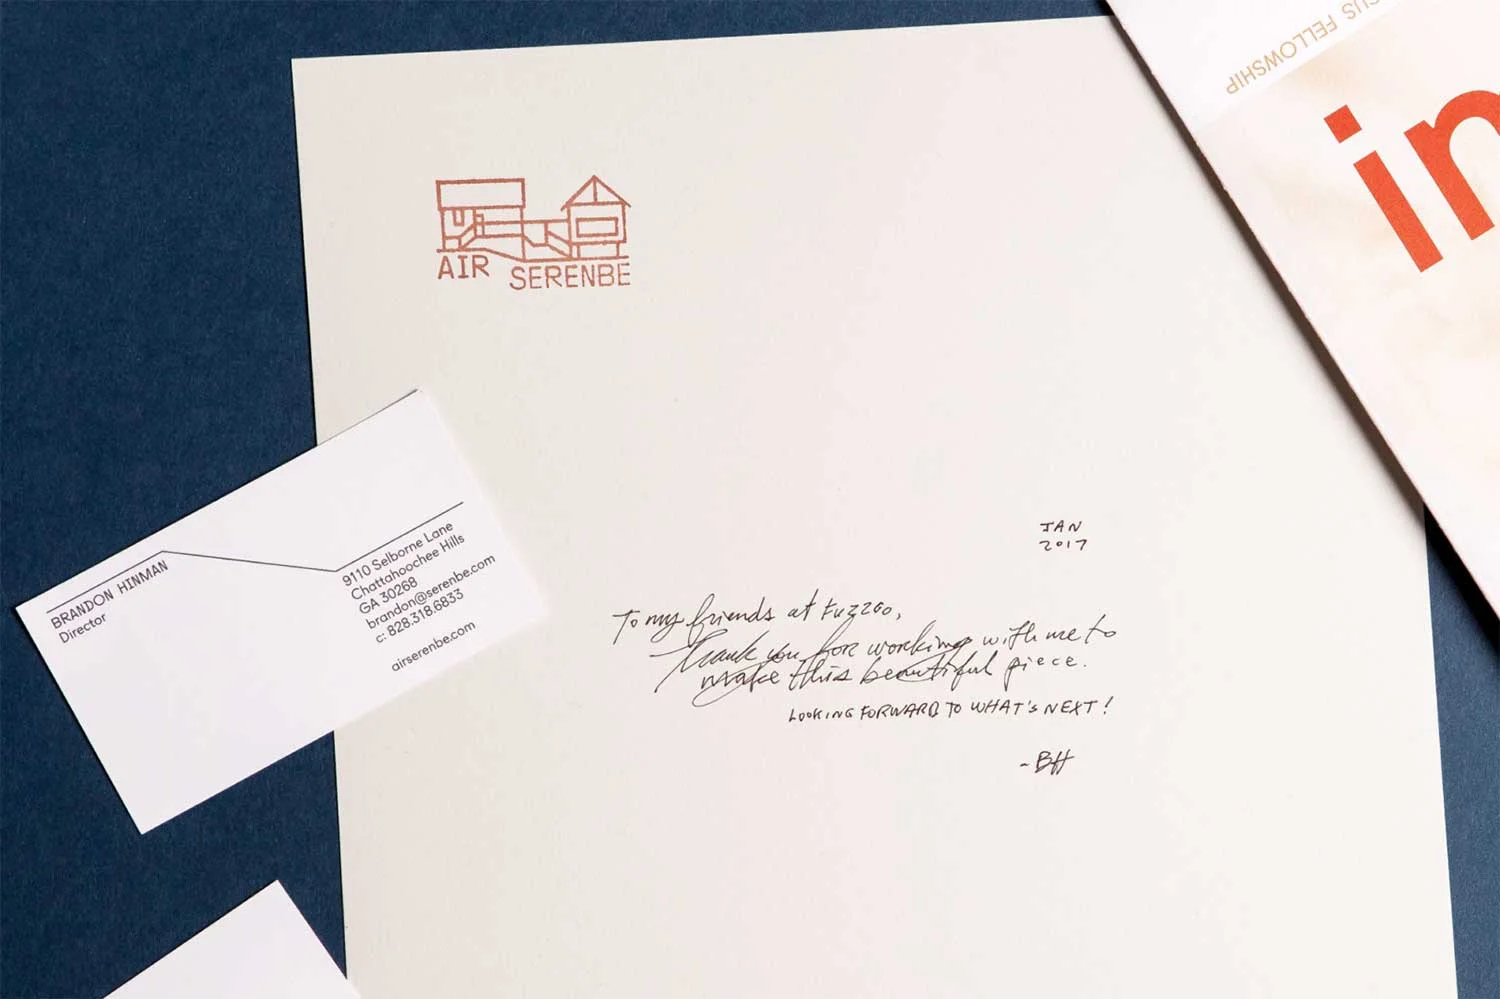 AIR SERENBE
US FELLOWSHIP
in
BRANDON HINMAN
Director
9110 Selborne Lane
Chattahoochee Hills
GA 30268
brandon@serenbe.com
c: 828.318.6833
airserenbe.com
JAN
2017
To my friends at Fuzzco,
Thank you for working with me to
make this beautiful piece.
LOOKING FORWARD TO WHAT'S NEXT!
-BH